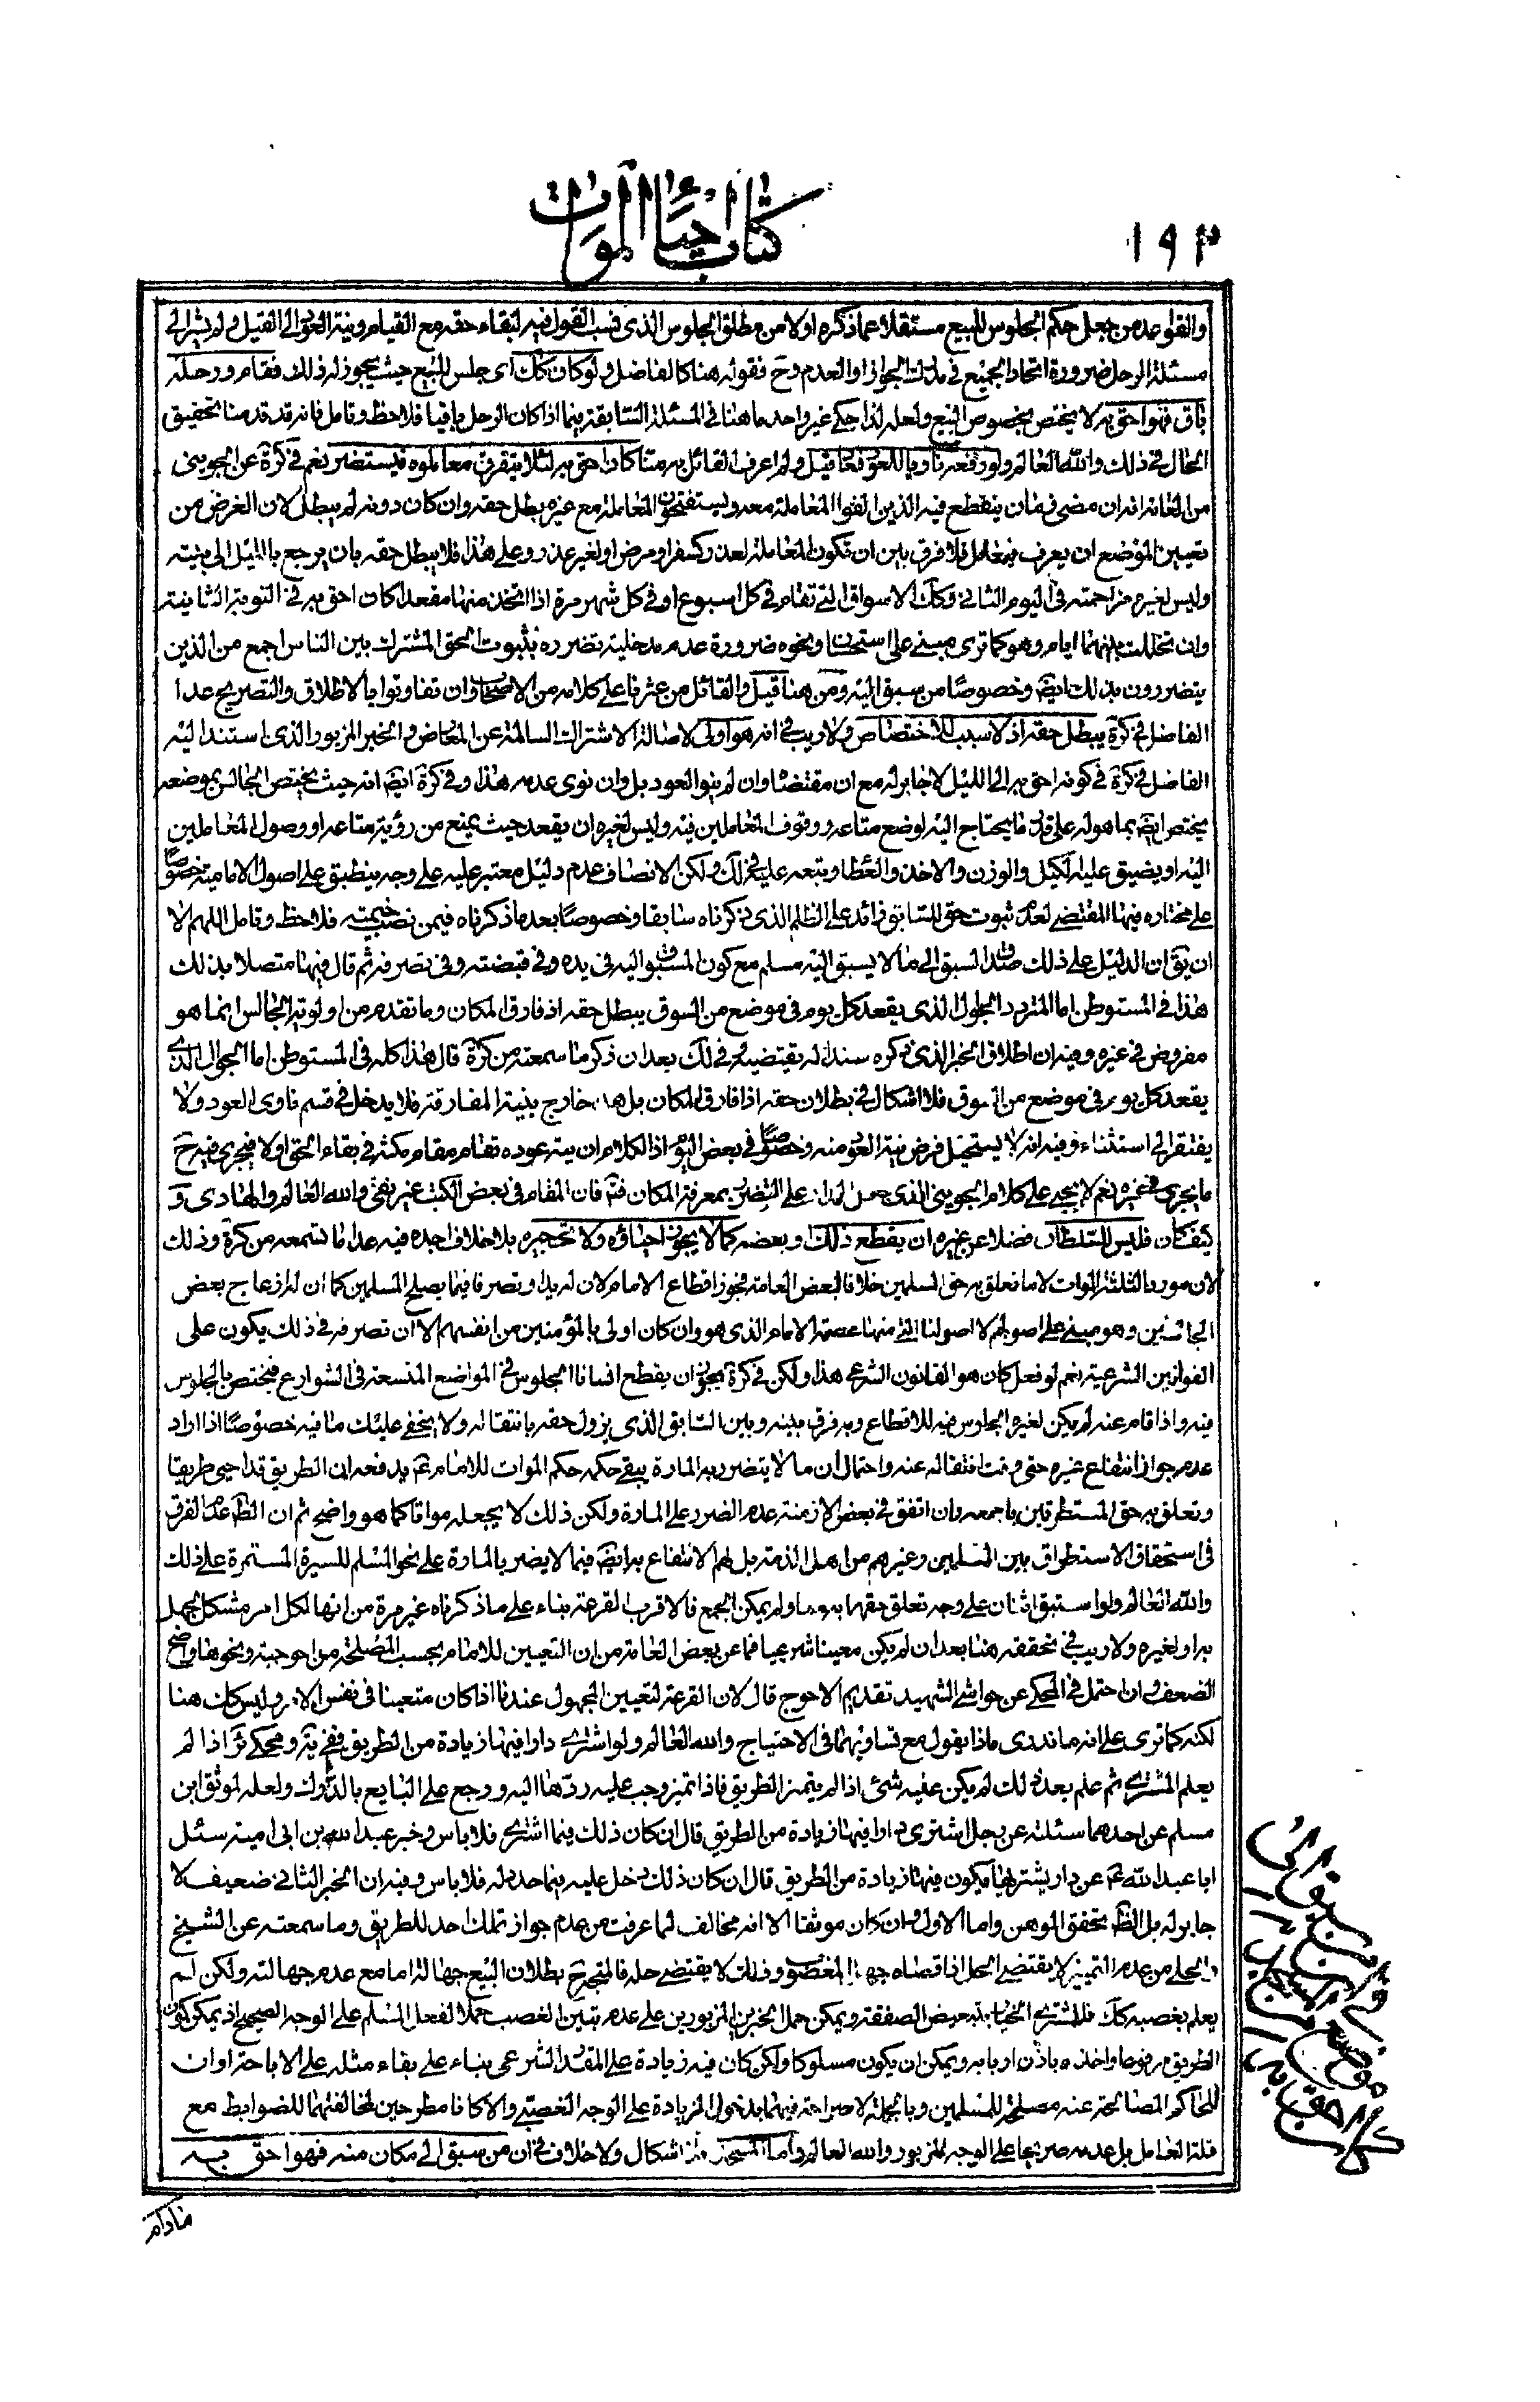 كتاب احياء الموات
١٩٣
والقواعد من جعل حكم الجلوس للبيع مستقلا عما ذكره اولا من مطلق الجلوس الذى نسب القول فيه لبقاء حقه مع القيام ونية العود الى القيل ولم يشر الى
مسئلة الرحل ضرورة اتحاد الجميع فى مدرك الجواز او العدم وح فقوله هنا كالفاضل ولو كان كك اى جلس للبيع حيث يجوز له ذلك فقام ورحله
باق فهو احق به لا يختص بخصوص البيع ولعله لذا حكى غير واحد ما هنا فى المسئلة السابقة فيما اذا كان الرحل باقيا فلاحظ وتامل فانه قد قدمنا تحقيق
الحال فى ذلك والله العالم ولو رفعه ناويا للعود فعا قيل ولم اعرف القائل به منا كان احق به لئلا يتفرق معاملوه فيستضر نعم فى كرة عن الجوينى
من العامة انه ان مضى زمان ينقطع فيه الذين الفوا المعاملة معه ويستفتحون المعاملة مع غيره بطل حقه وان كان دونه لم يبطل لان الغرض من
تعيين الموضع ان يعرف فيعامل فلا فرق بين ان تكون المعاملة لعذر كسفر او مرض او لغير عذر وعلى هذا فلا يبطل حقه بان يرجع بالليل الى بيته
وليس لغيره مزاحمته فى اليوم الثانى وكك الاسواق التى تقام فى كل اسبوع او فى كل شهر مرة اذا اتخذ منها مقعدا كان احق به فى النوبة الثانية
وان تخللت بينهما ايام وهو كما ترى مبنى على استحسان ونحوه ضرورة عدم مدخلية تضرره بثبوت الحق المشترك بين الناس اجمع من الذين
يتضررون بذلك ايضا وخصوصا من سبق اليه ومن هنا قيل والقائل من عثرنا على كلامه من الاصحاب وان تفاوتوا بالاطلاق والتصريح عدا
الفاضل فى كرة يبطل حقه اذ لا سبب للاختصاص ولا ريب فى انه هو اولى لاصالة الاشتراك السالمة عن المعارض والخبر المزبور الذى استند اليه
الفاضل فى كرة فى كونه احق به الى الليل لا جابر له مع ان مقتضاه وان لم ينو العود بل وان نوى عدمه هذا وفى كرة ايضا انه حيث يختص الجالس بموضعه
يختص ايضا بما حوله على قدر ما يحتاج اليه لوضع متاعه ووقوف المعاملين فيه وليس لغيره ان يقعد حيث يمنع من رؤية متاعه او وصول المعاملين
اليه او يضيق عليه الكيل والوزن والاخذ والعطا وتبعه عليه فى لك ولكن الانصاف عدم دليل معتبر عليه على وجه ينطبق على اصول الامامية خصوصا
على مختاره فيها المقتضى لعدم ثبوت حق للسابق زائد على الظلم الذى ذكرناه سابقا وخصوصا بعد ما ذكرناه فيمن نصب خيمته فلاحظ وتامل اللهم الا
ان يق ان الدليل على ذلك صدق السبق الى ما لا يسبق اليه مسلم مع كون المسبوق اليه فى يده وفى قبضته وفى تصرفه ثم قال فيها متصلا بذلك
هذا فى المستوطن اما المتردد الجوال الذى يقعد كل يوم فى موضع من السوق يبطل حقه اذ فارق المكان وما تقدم من اولوية الجالس انما هو
مفروض فى غيره وفيه ان اطلاق الخبر الذى ذكره سندا له يقتضيه وفى لك بعد ان ذكر ما سمعته من كرة قال هذا كله فى المستوطن اما الجوال الذى
يقعد كل يوم فى موضع من السوق فلا اشكال فى بطلان حقه اذا فارق المكان بل هذا خارج بنية المفارقة فلا يدخل فى قسم ناوى العود ولا
يفتقر الى استثناء وفيه انه لا يستحيل فرض نية العود منه وخصوصا فى بعض اليوم اذ الكلام ان نية عوده تقام مقام مكثه فى بقاء الحق اولا فيجرى فيه ح
ما يجرى فى غيره نعم لا يجيى على كلام الجوينى الذى جعل المدار على التضرر بمعرفة المكان فتم فان المقام فى بعض الكتب غير نقى والله العالم والهادى و
كيف كان فليس للسلطان فضلا عن غيره ان يقطع ذلك او بعضه كما لا يجوز احياؤه ولا تحجيره بلا خلاف اجده فيه عدا ما تسمعه من كرة وذلك
لان مورد الثلثة الموات لا ما تعلق به حق المسلمين خلافا لبعض العامة فجوز اقطاع الامام لان له يدا وتصرفا فيما يصلح المسلمين كما ان له ازعاج بعض
الجالسين وهو مبنى على اصولهم لا اصولنا التى منها عصمة الامام الذى هو وان كان اولى بالمؤمنين من انفسهم الا ان تصرفه فى ذلك يكون على
القوانين الشرعية نعم لو فعل كان هو القانون الشرعى هذا ولكن فى كرة يجوز ان يقطع انسانا الجلوس فى المواضع المتسعة فى الشوارع فيختص بالجلوس
فيه واذا قام عنه لم يكن لغيره الجلوس فيه للاقطاع وبه فرق بينه وبين السابق الذى يزول حقه بانتقاله ولا يخفى عليك ما فيه خصوصا اذا اراد
عدم جواز انتفاع غيره حتى وقت انتقاله عنه واحتمال ان ما لا يتضرر به المارة يبقى حكمه حكم الموات للامام ع يدفعه ان الطريق قد احيى طريقا
وتعلق به حق المستطرقين باجمعه وان اتفق فى بعض الازمنة عدم الضرر على المارة ولكن ذلك لا يجعله مواتا كما هو واضح ثم ان الظ عدم الفرق
فى استحقاق الاستطراق بين المسلمين وغيرهم من اهل الذمة بل لهم الانتفاع به ايضا فيما لا يضر بالمارة على نحو المسلم للسيرة المستمرة على ذلك
والله العالم ولو استبق اثنان على وجه تعلق حقهما به معا ولم يمكن الجمع فالاقرب القرعة بناء على ما ذكرناه غير مرة من انها لكل امر مشكل الجهل
به او لغيره ولا ريب فى تحققه هنا بعد ان لم يكن معينا شرعيا فما عن بعض العامة من ان التعيين للامام بحسب المصلحة من احوجية ونحوها واضح
الضعف وان احتمل فى المحكى عن حواشى الشهيد تقديم الاحوج قال لان القرعة لتعيين المجهول عندنا اذا كان متعينا فى نفس الامر وليس كك هنا
لكنه كما ترى على انه ما ندرى ماذا يقول مع تساويهما فى الاحتياج والله العالم ولو اشترى دارا فيها زيادة من الطريق ففى ية ومحكى ئر اذا لم
يعلم المشترى ثم علم بعد ذلك لم يكن عليه شئ اذا لم يتميز الطريق فاذا تميز وجب عليه ردها اليه ورجع على البايع بالدرك ولعله لموثق ابن
مسلم عن احدهما سئلته عن رجل اشترى دارا فيها زيادة من الطريق قال ان كان ذلك فيما اشترى فلا باس وخبر عبد الله بن ابى امية سئل
ابا عبد الله ع عن دار يشتريها يكون فيها زيادة من الطريق قال ان كان ذلك دخل عليه فيما حدد له فلا باس وفيه ان الخبر الثانى ضعيف لا
جابر له بل الظ تحقق الموهن واما الاول وان كان موثقا الا انه مخالف لما عرفت من عدم جواز تملك احد للطريق وما سمعته عن الشيخ
والحلى من عدم التميز لا يقتضى الحل اذ اقصاه جهالة المغصوب وذلك لا يقتضى حله فالمتجه ح بطلان البيع جهالة اما مع عدم جهالته ولكن لم
يعلم بغصبه كك فللمشترى الخيار بتبعيض الصفقة ويمكن حمل الخبرين المزبورين على عدم تبين الغصب حملا لفعل المسلم على الوجه الصحيح اذ يمكن كون
الطريق مرفوعا واخذه باذن اربابه ويمكن ان يكون مسلوكا ولكن كان فيه زيادة على المقدر الشرعى بناء على بقاء مثله على الاباحة او ان
للحاكم المصالحة عنه مصلحة للمسلمين وبالجملة لا صراحة فيهما بدخول الزيادة على الوجه الغصبى والا كانا مطرحين لمخالفتهما للضوابط مع
قلة العامل بل عدمه صريحا على الوجه المزبور والله العالم واما المسجد فلا اشكال ولا خلاف فى ان من سبق الى مكان منه فهو احق به
مادام
فى ان من سبق الى
مكان من المسجد
فهو احق به